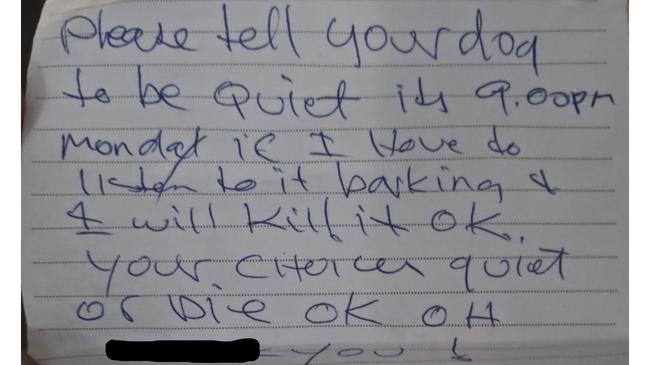 Please tell your dog
to be quiet its 9.00pm
Monday if I Have to
listen to it barking &
I will kill it OK.
Your choice quiet
or Die OK
you